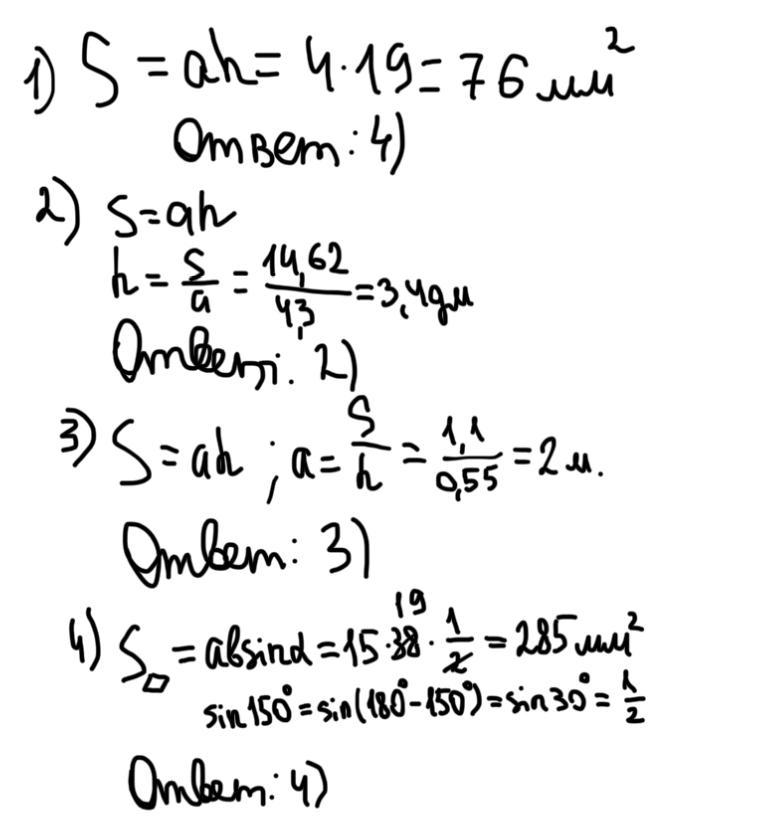 1) S = ah = 4·19 = 76 мм²
Ответ: 4)
2) S = ah
h = S/a = 14,62/4,3 = 3,4 дм
Ответ: 2)
3) S = ah ; a = S/h = 1,1/0,55 = 2 м.
Ответ: 3)
19
4) S▱ = absinα = 15·38·1/2 = 285 мм²
sin150° = sin(180° - 150°) = sin30° = 1/2
Ответ: 4)